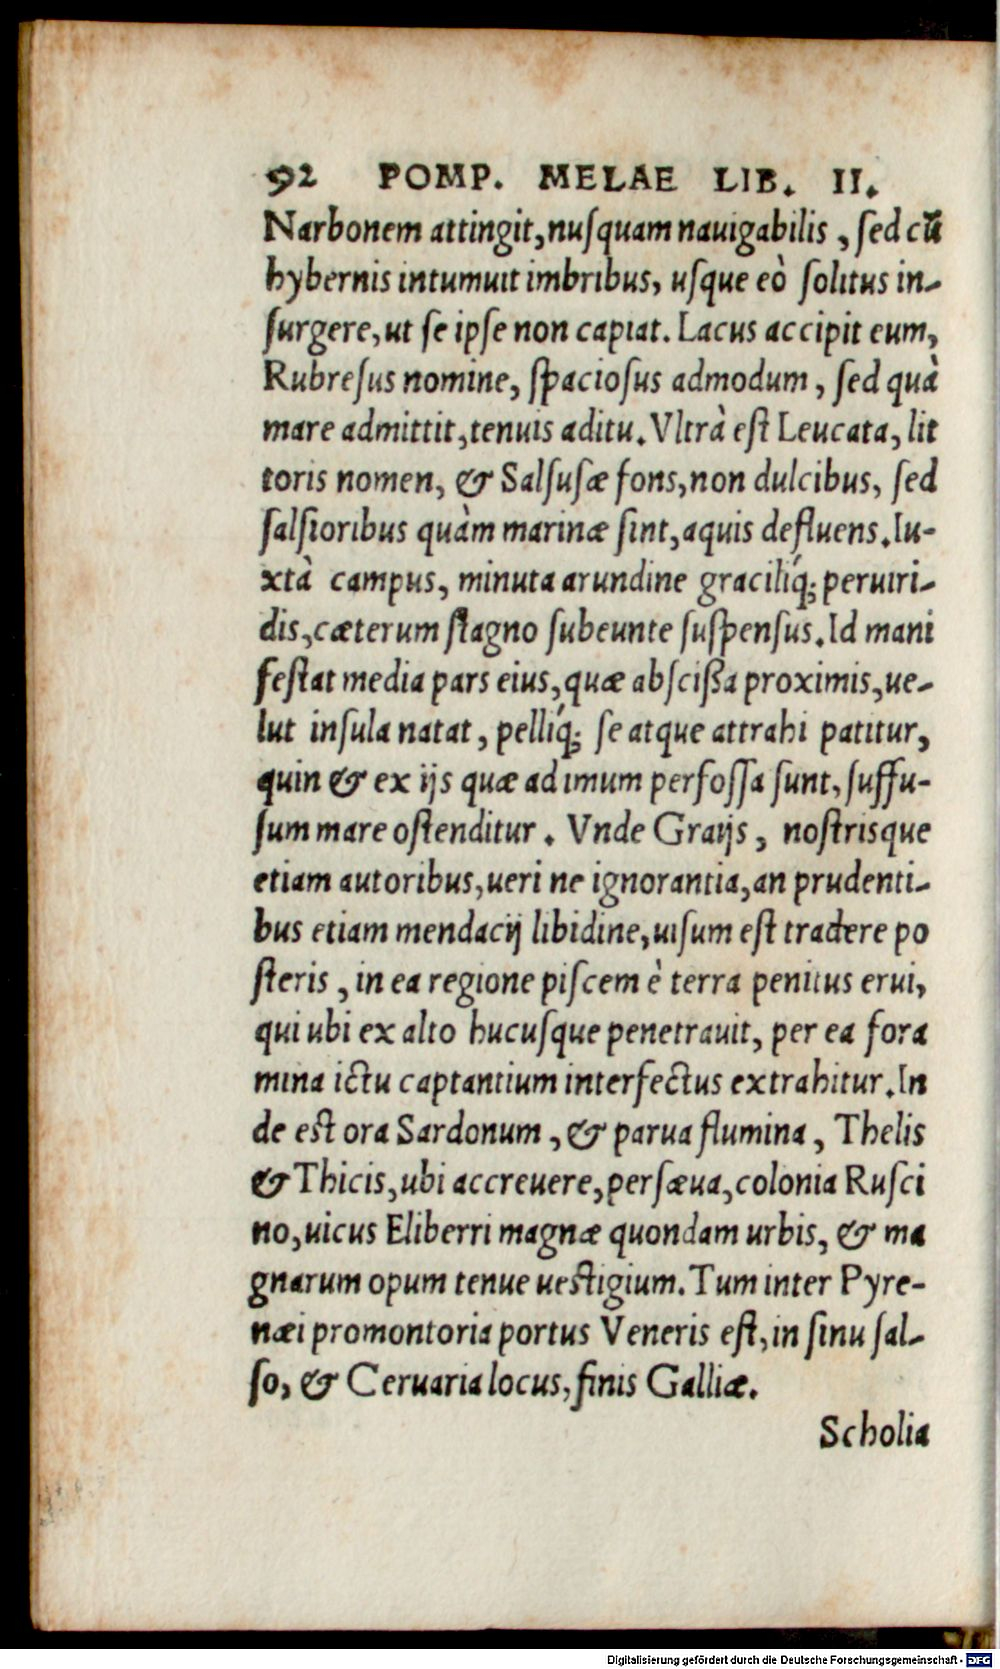 92 POMP. MELAE LIB. II.
Narbonem attingit, nuſquam nauigabilis, ſed cũ
hybernis intumuit imbribus, uſque eò ſolitus in-
ſurgere, ut ſe ipſe non capiat. Lacus accipit eum,
Rubreſus nomine, ſpacioſus admodum, ſed quà
mare admittit, tenuis aditu. Vltrà eſt Leucata, lit
toris nomen, & Salſuſæ fons, non dulcibus, ſed
ſalſioribus quàm marinæ ſint, aquis defluens. Iu-
xtà campus, minuta arundine graciliq́; peruiri-
dis, cæterum ſtagno ſubeunte ſuſpenſus. Id mani
feſtat media pars eius, quæ abſciſſa proximis, ue-
lut inſula natat, pelliq́; ſe atque attrahi patitur,
quin & ex ijs quæ ad imum perfoſſa ſunt, ſuffu-
ſum mare oſtenditur. Vnde Graijs, noſtrisque
etiam autoribus, ueri ne ignorantia, an prudenti-
bus etiam mendacij libidine, uiſum eſt tradere po
ſteris, in ea regione piſcem è terra penitus erui,
qui ubi ex alto hucuſque penetrauit, per ea fora
mina ictu captantium interfectus extrahitur. In
de eſt ora Sardonum, & parua flumina, Thelis
& Thicis, ubi accreuere, perſæua, colonia Ruſci
no, uicus Eliberri magnæ quondam urbis, & ma
gnarum opum tenue ueſtigium. Tum inter Pyre-
næi promontoria portus Veneris eſt, in ſinu ſal-
ſo, & Ceruaria locus, finis Galliæ.
Scholia
Digitalisierung gefördert durch die Deutsche Forschungsgemeinschaft - DFG